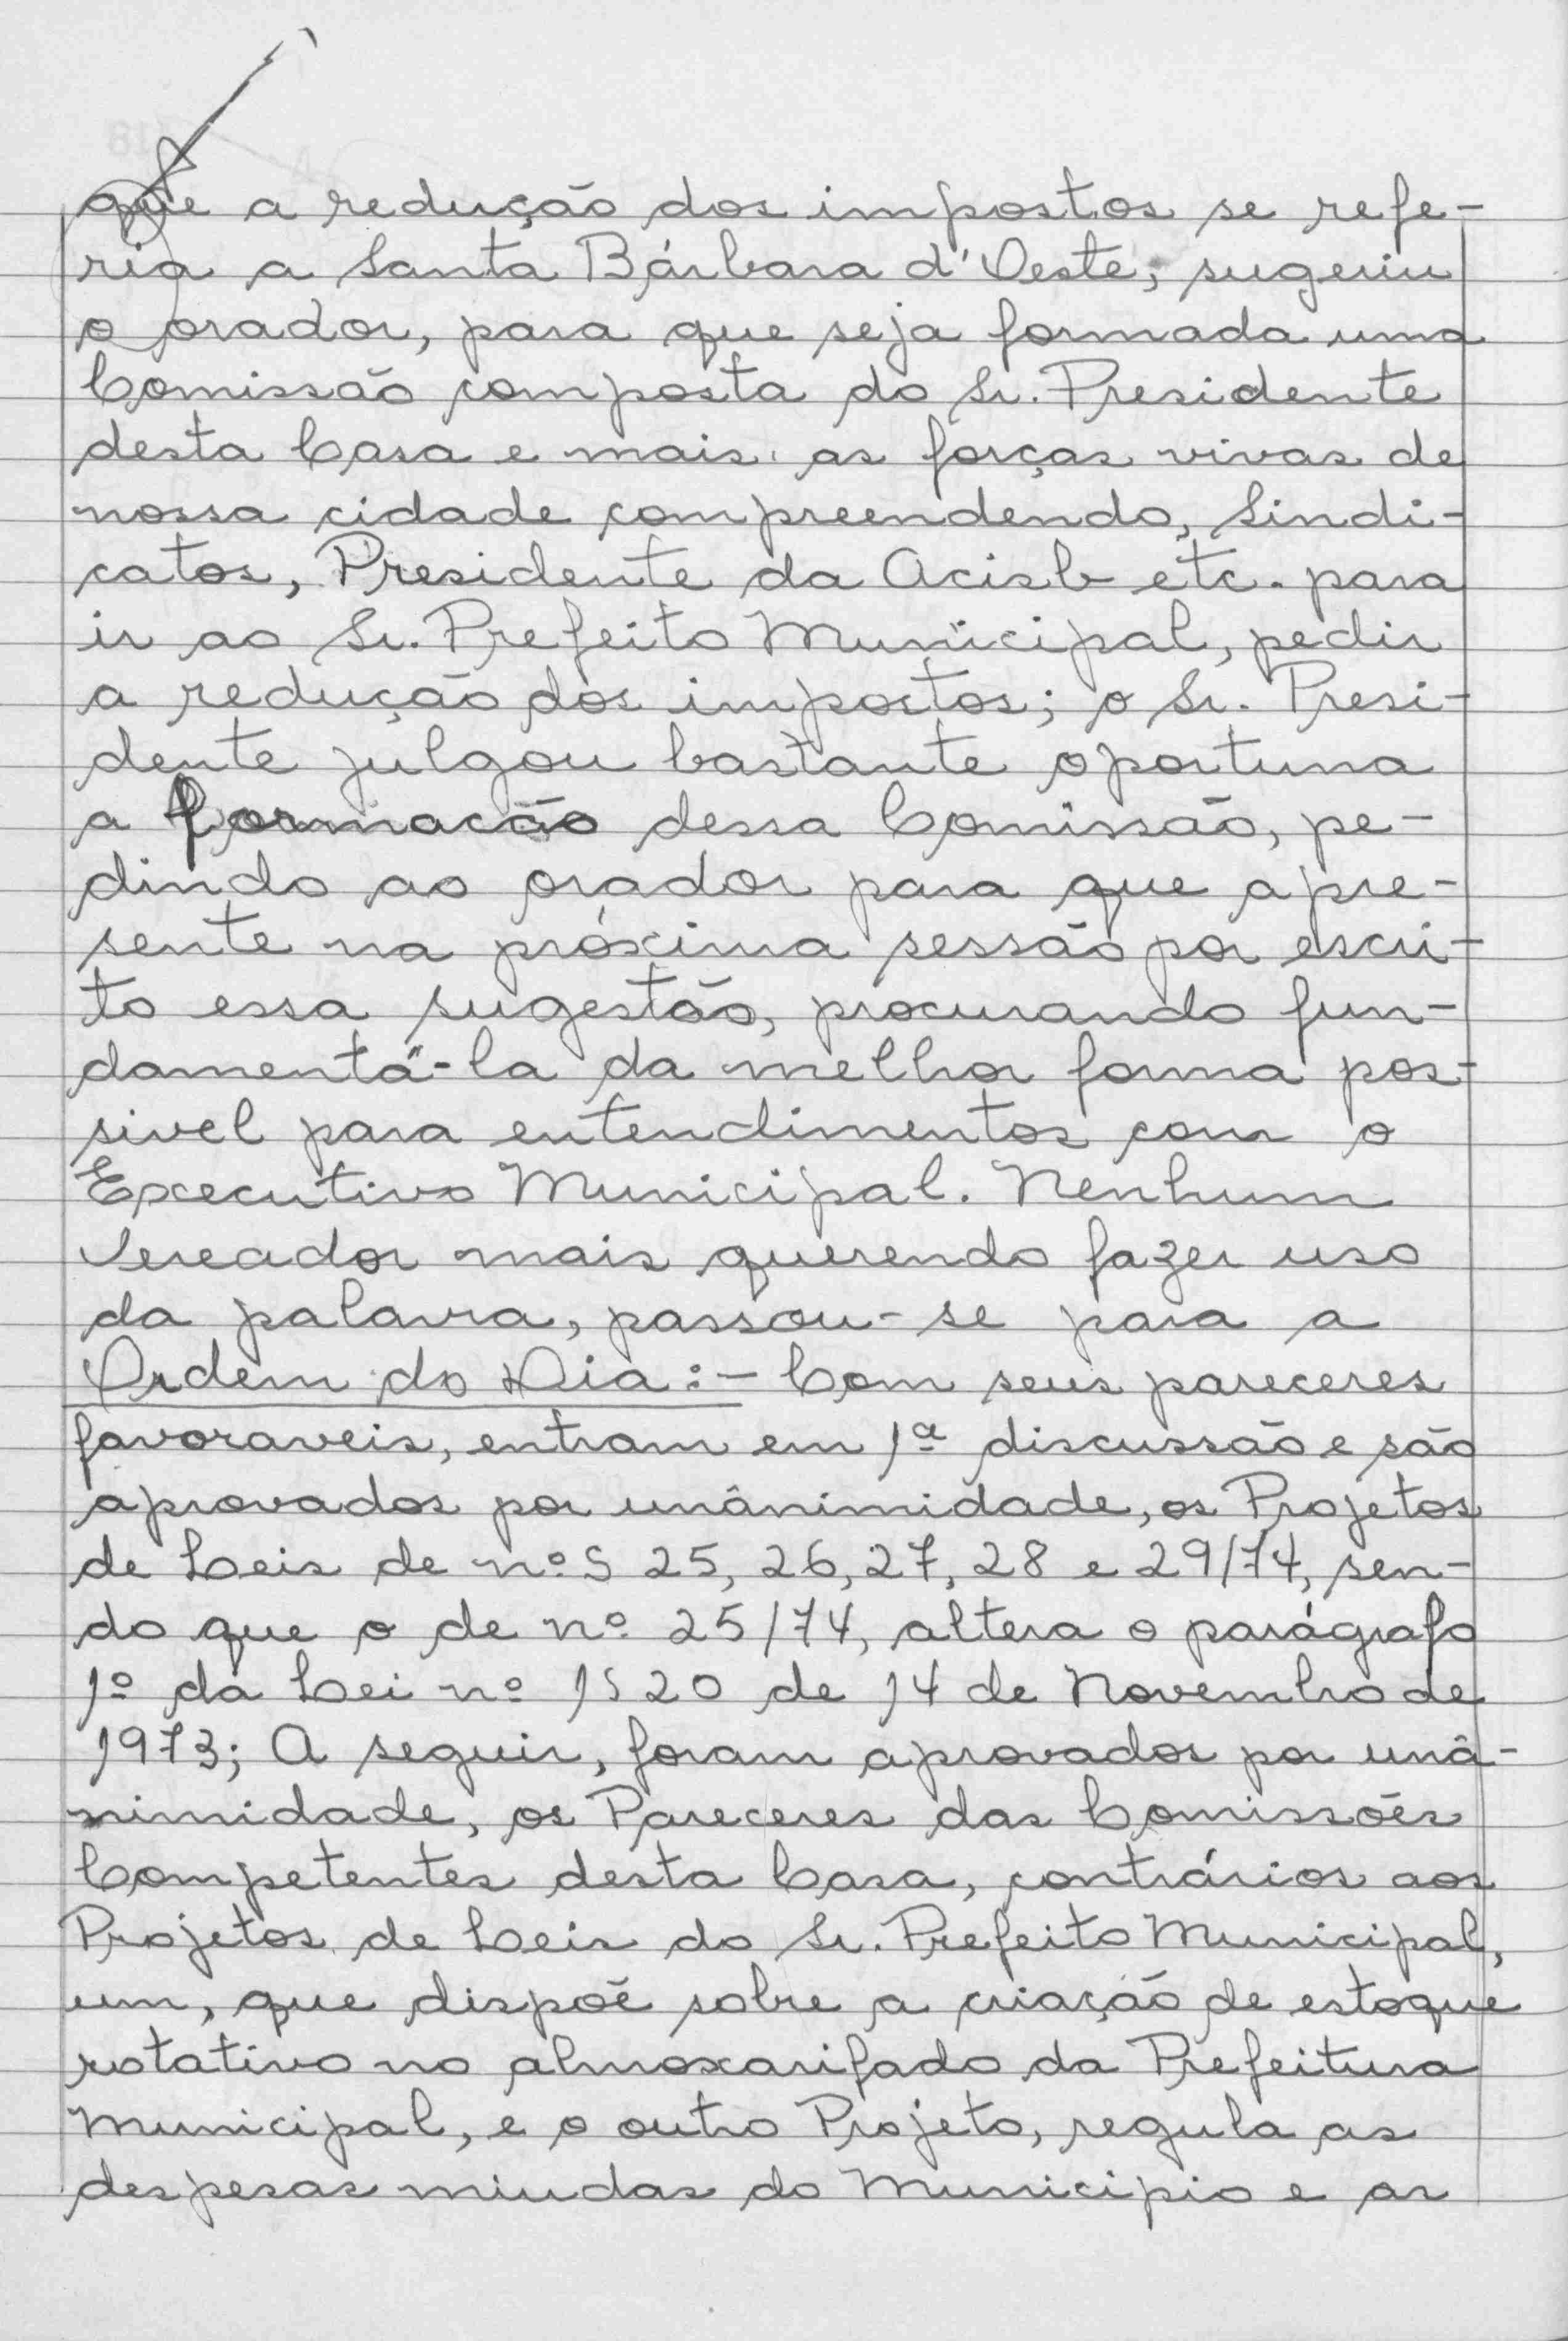 que a redução dos impostos se refe-
ria a Santa Bárbara d'Oeste, sugeriu
o orador, para que seja formada uma
Comissão composta do Sr. Presidente
desta Casa e mais as forças vivas de
nossa cidade compreendendo, Sindi-
catos, Presidente da Acisb etc. para
ir ao Sr. Prefeito Municipal, pedir
a redução dos impostos; o Sr. Presi-
dente julgou bastante oportuna
a formacão dessa Comissão, pe-
dindo ao orador para que apre-
sente na próxima sessão por escri-
to essa sugestão, procurando fun-
damentá-la da melhor forma pos-
sivel para entendimentos com o
Executivo Municipal. Nenhum
Vereador mais querendo fazer uso
da palavra, passou-se para a
Ordem do Dia:- Com seus pareceres
favoraveis, entram em 1ª discussão e são
aprovados por unânimidade, os Projetos
de Leis de nºs 25, 26, 27, 28 e 29/74, sen-
do que o de nº 25/74, altera o parágrafo
1º da Lei nº 1520 de 14 de Novembro de
1973; A seguir, foram aprovados por unâ-
nimidade, os Pareceres das Comissões
Competentes desta Casa, contrários aos
Projetos de Leis do Sr. Prefeito Municipal,
um, que dispoê sobre a criação de estoque
rotativo no almoxarifado da Prefeitura
Municipal, e o outro Projeto, regula as
despesas miudas do Municipio e as